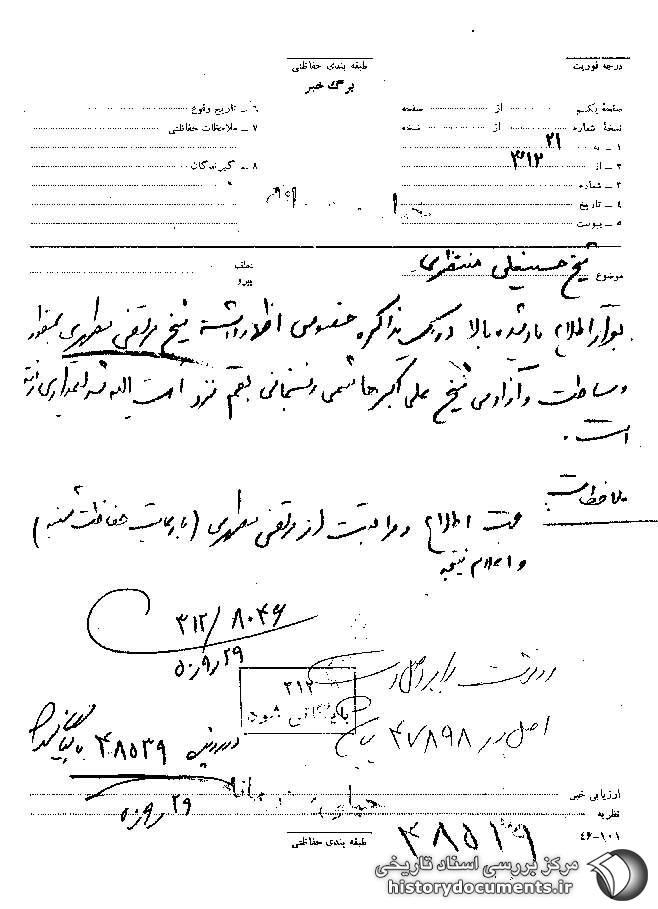 درجه فوریت
طبقه بندی حفاظتی
برگ خبر
صفحهٔ یکم از صفحه
نسخهٔ شماره از نسخه
۱ – به ۲۱
۲ – از ۳۱۲
۳ – شماره
۴ – تاریخ
۵ – پیوست
۶ – تاریخ وقوع
۷ – ملاحظات حفاظتی
۸ – گیرندگان
موضوع شیخ حسینعلی منتظری
عطف
پیرو
اطلاع نامبرده بالا در یک مذاکره خصوصی اظهار داشته شیخ مرتضی مطهری بمنظور
وساطت و آزادی شیخ علی اکبر هاشمی رفسنجانی بقم نزد آیت الله شریعتمداری رفته
است .
ملاحظات
جهت اطلاع و مراقبت از مرتضی مطهری (با رعایت حفاظت منبع)
و اعلام نتیجه
۳۱۲/۸۰۴۶
۲۹
در پرونده
۳۱۲
بایگانی شود
اصل در ۴۷۸۹۸
در پرونده ۴۸۵۳۹
۲۹
ارزیابی خبر
نظریه
۴۶-۱۰۱
طبقه بندی حفاظتی
۴۸۵۱۹
مرکز بررسی اسناد تاریخی
historydocuments.ir